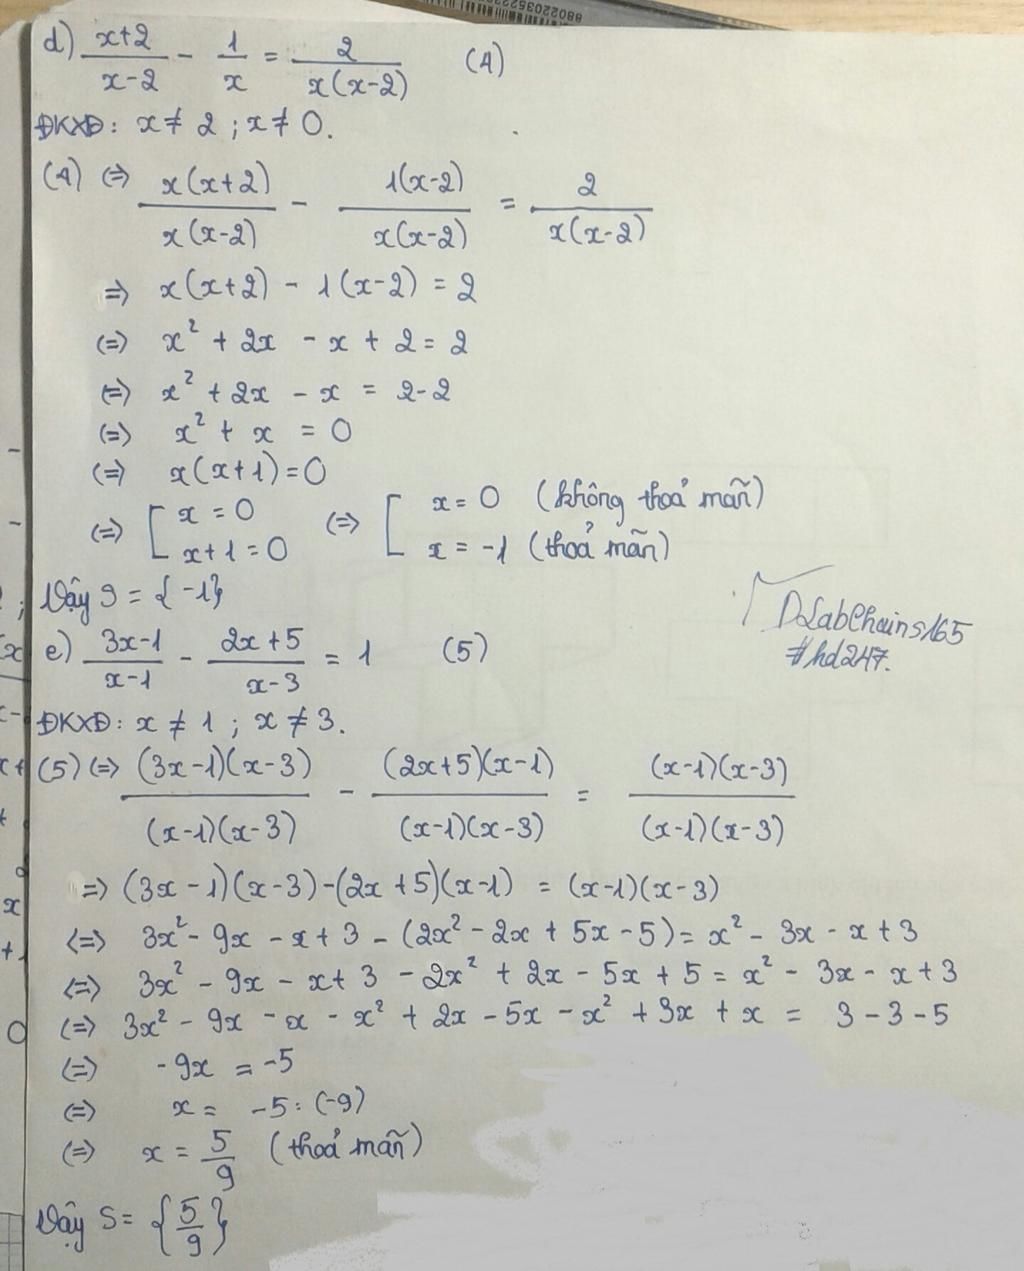 8802203522
d) \frac{x+2}{x-2} - \frac{1}{x} = \frac{2}{x(x-2)} (A)
ĐKXĐ: x ≠ 2 ; x ≠ 0.
(A) (=) \frac{x(x+2)}{x(x-2)} - \frac{1(x-2)}{x(x-2)} = \frac{2}{x(x-2)}
=> x(x+2) - 1(x-2) = 2
(=) x² + 2x - x + 2 = 2
(=) x² + 2x - x = 2-2
(=) x² + x = 0
(=) x(x+1)=0
(=) [ x = 0 (=) [ x = 0 (không thoả mãn)
x+1=0 x = -1 (thoả mãn)
Vậy S = {-1}
DLabChains165
#hd247.
e) \frac{3x-1}{x-1} - \frac{2x+5}{x-3} = 1 (5)
ĐKXĐ: x ≠ 1 ; x ≠ 3.
(5) (=) \frac{(3x-1)(x-3)}{(x-1)(x-3)} - \frac{(2x+5)(x-1)}{(x-1)(x-3)} = \frac{(x-1)(x-3)}{(x-1)(x-3)}
=> (3x-1)(x-3)-(2x+5)(x-1) = (x-1)(x-3)
<=> 3x² - 9x - x + 3 - (2x² - 2x + 5x - 5) = x² - 3x - x + 3
<=> 3x² - 9x - x + 3 - 2x² + 2x - 5x + 5 = x² - 3x - x + 3
(=) 3x² - 9x - x - x² + 2x - 5x - x² + 3x + x = 3 - 3 - 5
(=) -9x = -5
(=) x = -5 : (-9)
(=) x = \frac{5}{9} (thoả mãn)
Vậy S = {\frac{5}{9}}